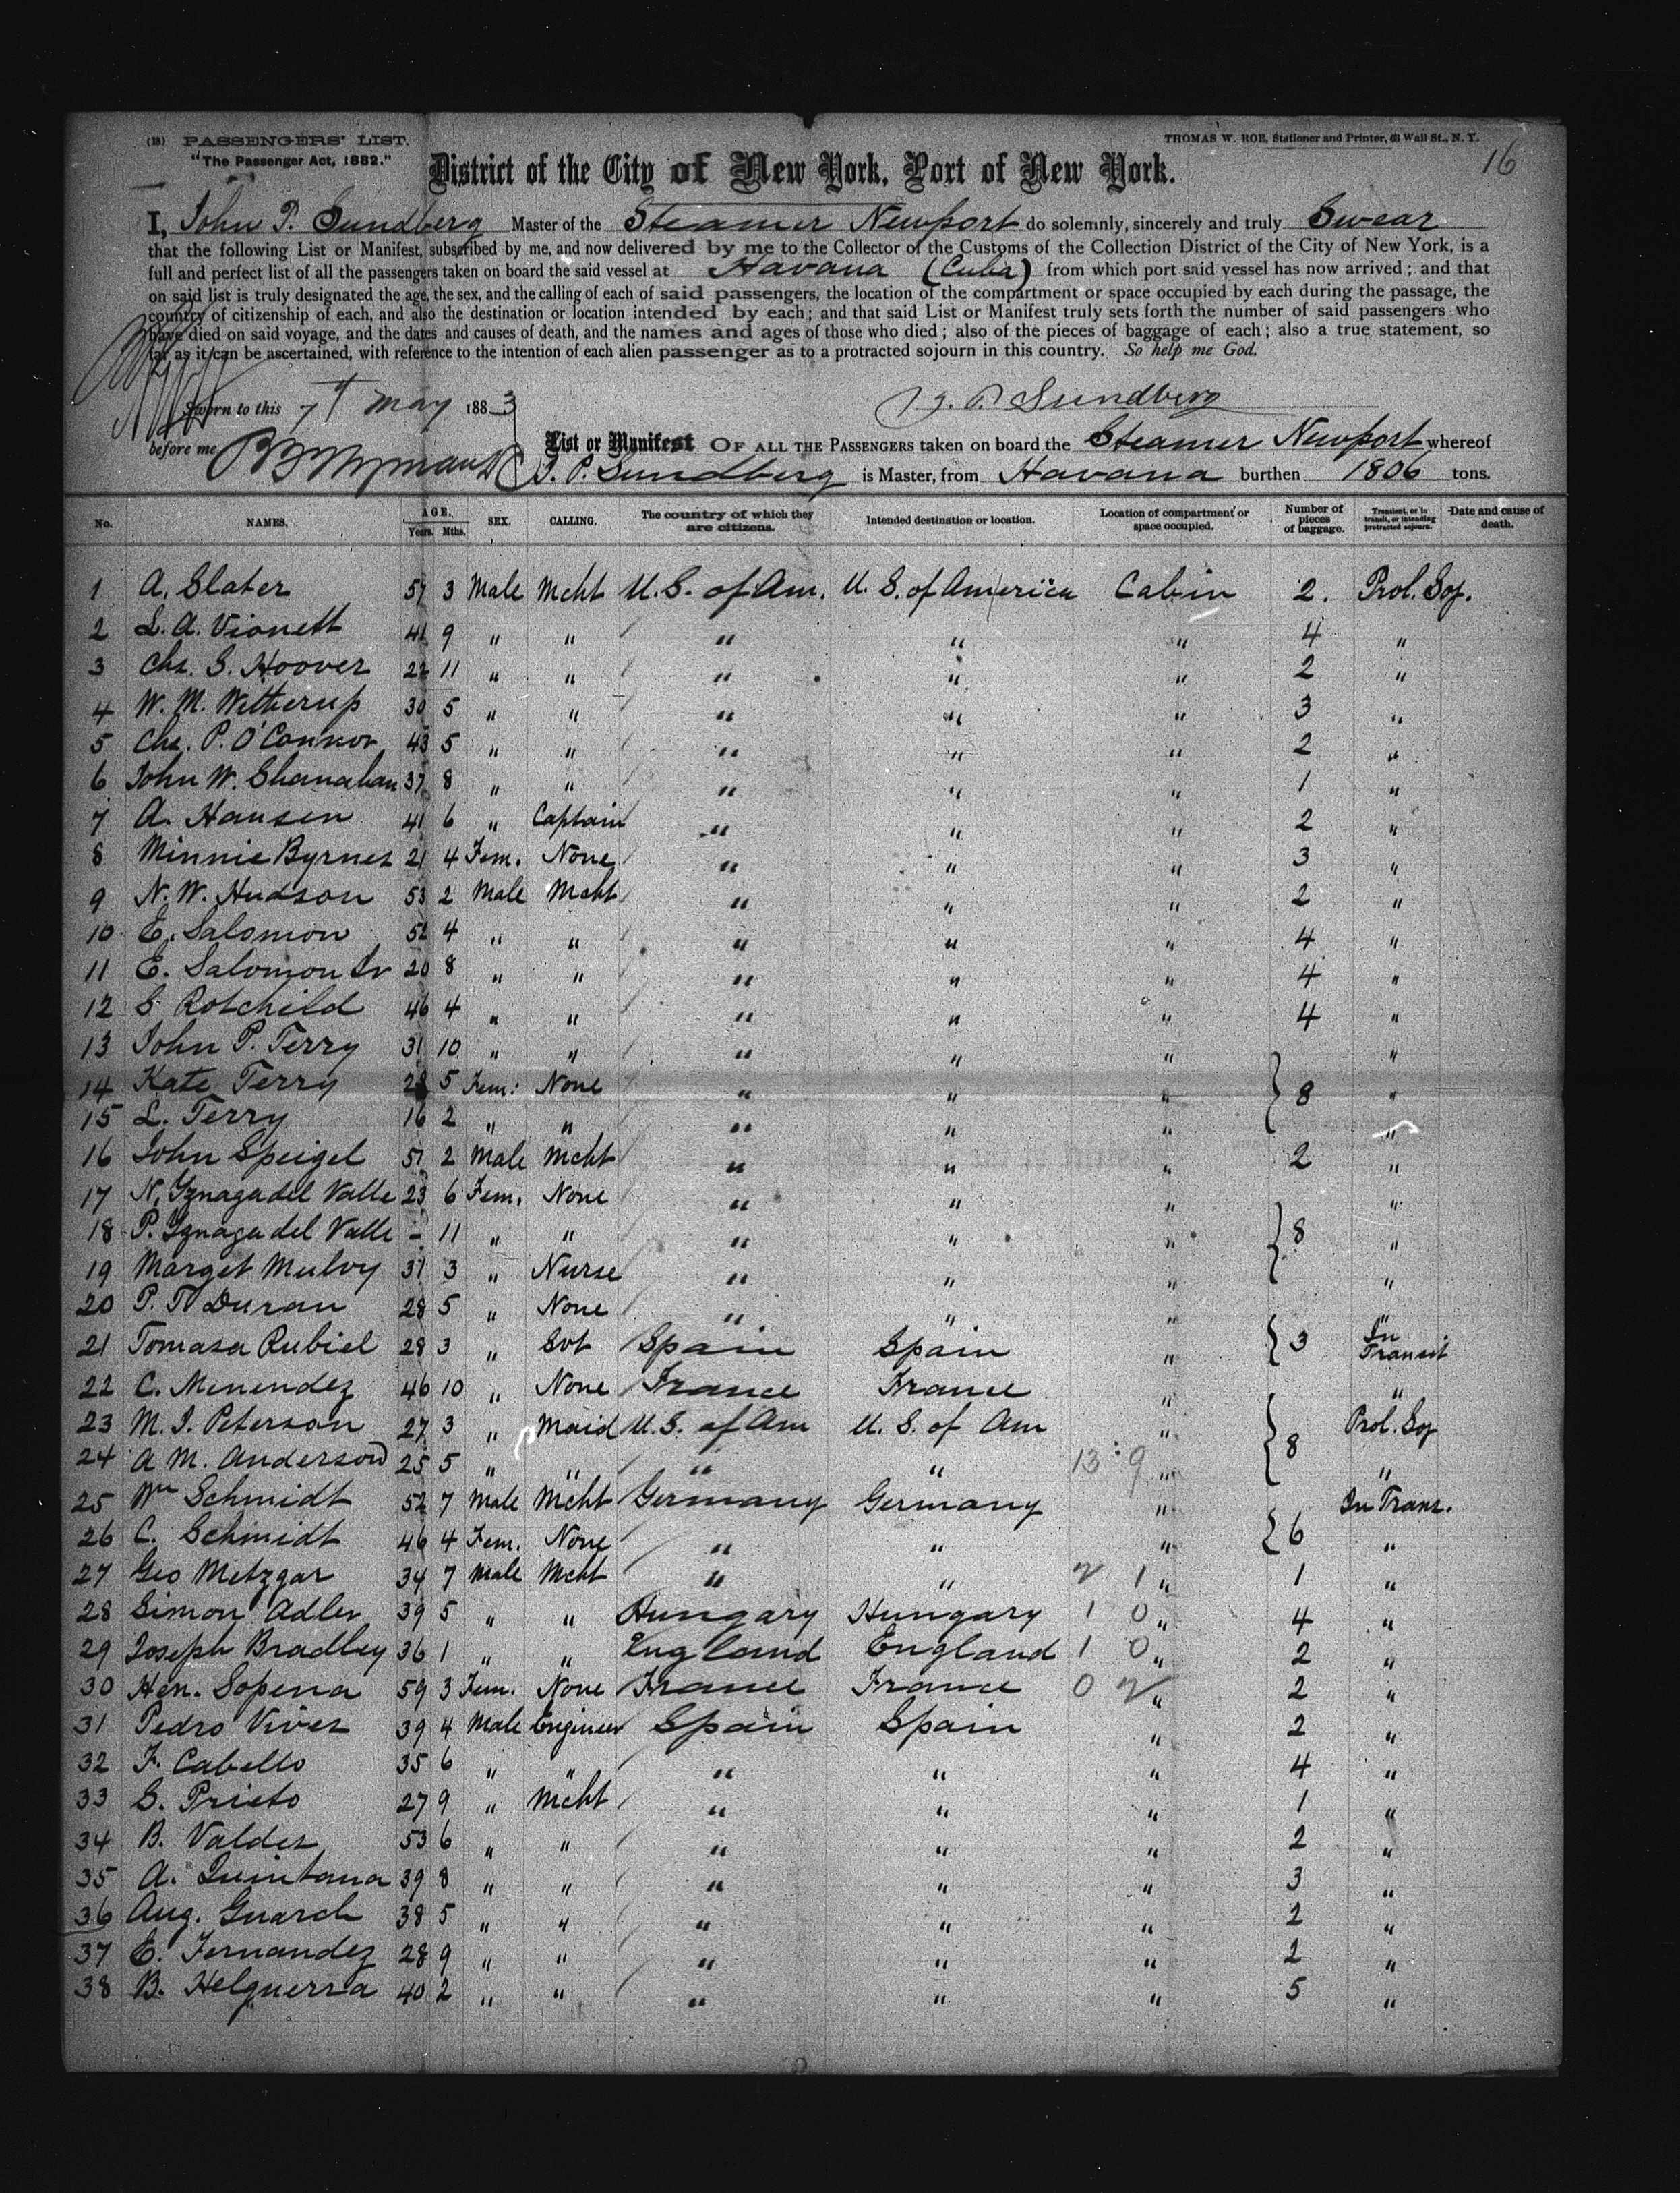 (18) PASSENGERS' LIST.
THOMAS W. ROE, Stationer and Printer, 63 Wall St., N. Y.
"The Passenger Act, 1882."
16
District of the City of New York, Port of New York.
I, John P. Sundberg Master of the Steamer Newport do solemnly, sincerely and truly Swear
that the following List or Manifest, subscribed by me, and now delivered by me to the Collector of the Customs of the Collection District of the City of New York, is a
full and perfect list of all the passengers taken on board the said vessel at Havana (Cuba) from which port said vessel has now arrived; and that
on said list is truly designated the age, the sex, and the calling of each of said passengers, the location of the compartment or space occupied by each during the passage, the
country of citizenship of each, and also the destination or location intended by each; and that said List or Manifest truly sets forth the number of said passengers who
have died on said voyage, and the dates and causes of death, and the names and ages of those who died; also of the pieces of baggage of each; also a true statement, so
far as it can be ascertained, with reference to the intention of each alien passenger as to a protracted sojourn in this country. So help me God.
Sworn to this 7th May 1883
J. P. Sundberg
before me
List or Manifest OF ALL THE PASSENGERS taken on board the Steamer Newport whereof
J. P. Sundberg is Master, from Havana burthen 1806 tons.
No. NAMES. AGE. Years. Mths. SEX. CALLING. The country of which they are citizens. Intended destination or location. Location of compartment or space occupied. Number of pieces of baggage. Transient, or in transit, or intending protracted sojourn. Date and cause of death.
1 A. Slater 57 3 Male Mcht U.S. of Am. U.S. of America Cabin 2. Prol. Soj.
2 L. A. Vionett 41 9 " " " " " 4 "
3 Chs. S. Hoover 22 11 " " " " " 2 "
4 W. M. Witherup 30 5 " " " " " 3 "
5 Chs. P. O'Connor 43 5 " " " " " 2 "
6 John W. Shanahan 37 8 " " " " " 1 "
7 A. Hansen 41 6 " Captain " " " 2 "
8 Minnie Byrnes 21 4 Fem. None " " " 3 "
9 N. W. Hudson 53 2 Male Mcht " " " 2 "
10 E. Salomon 52 4 " " " " " 4 "
11 E. Salomon Jr 20 8 " " " " " 4 "
12 S Rotchild 46 4 " " " " " 4 "
13 John P. Terry 31 10 " " " " " "
14 Kate Terry 28 5 Fem: None " " " } 8 "
15 L. Terry 16 2 " " " " " "
16 John Speigel 57 2 Male Mcht " " " 2 "
17 N. Yznaga del Valle 23 6 Fem. None " " " "
18 P. Yznaga del Valle - 11 " " " " " } 8 "
19 Marget Mulvy 37 3 " Nurse " " " "
20 P. T. Duran 28 5 " None " " " "
21 Tomasa Rubiel 28 3 " Svt Spain Spain " } 3 In Transit
22 C. Menendez 46 10 " None France France " "
23 M. J. Peterson 27 3 " Maid U.S. of Am U.S. of Am " Prol. Soj
24 A M. Anderson 25 5 " " " " 13 : 9 " } 8 "
25 Wm Schmidt 52 7 Male Mcht Germany Germany " In Trans.
26 C. Schmidt 46 4 Fem. None " " " } 6 "
27 Geo Metzgar 34 7 Male Mcht " " 2 1 " 1 "
28 Simon Adler 39 5 " " Hungary Hungary 1 0 " 4 "
29 Joseph Bradley 36 1 " " England England 1 0 " 2 "
30 Hen. Sopena 59 3 Fem. None France France 0 2 " 2 "
31 Pedro Vives 39 4 Male Engineer Spain Spain " 2 "
32 F. Cabello 35 6 " " " " " 4 "
33 S. Prieto 27 9 " Mcht " " " 1 "
34 B. Valdes 53 6 " " " " " 2 "
35 A. Quintana 39 8 " " " " " 3 "
36 Aug. Guarch 38 5 " " " " " 2 "
37 E. Fernandez 28 9 " " " " " 2 "
38 B. Helguerra 40 2 " " " " " 5 "